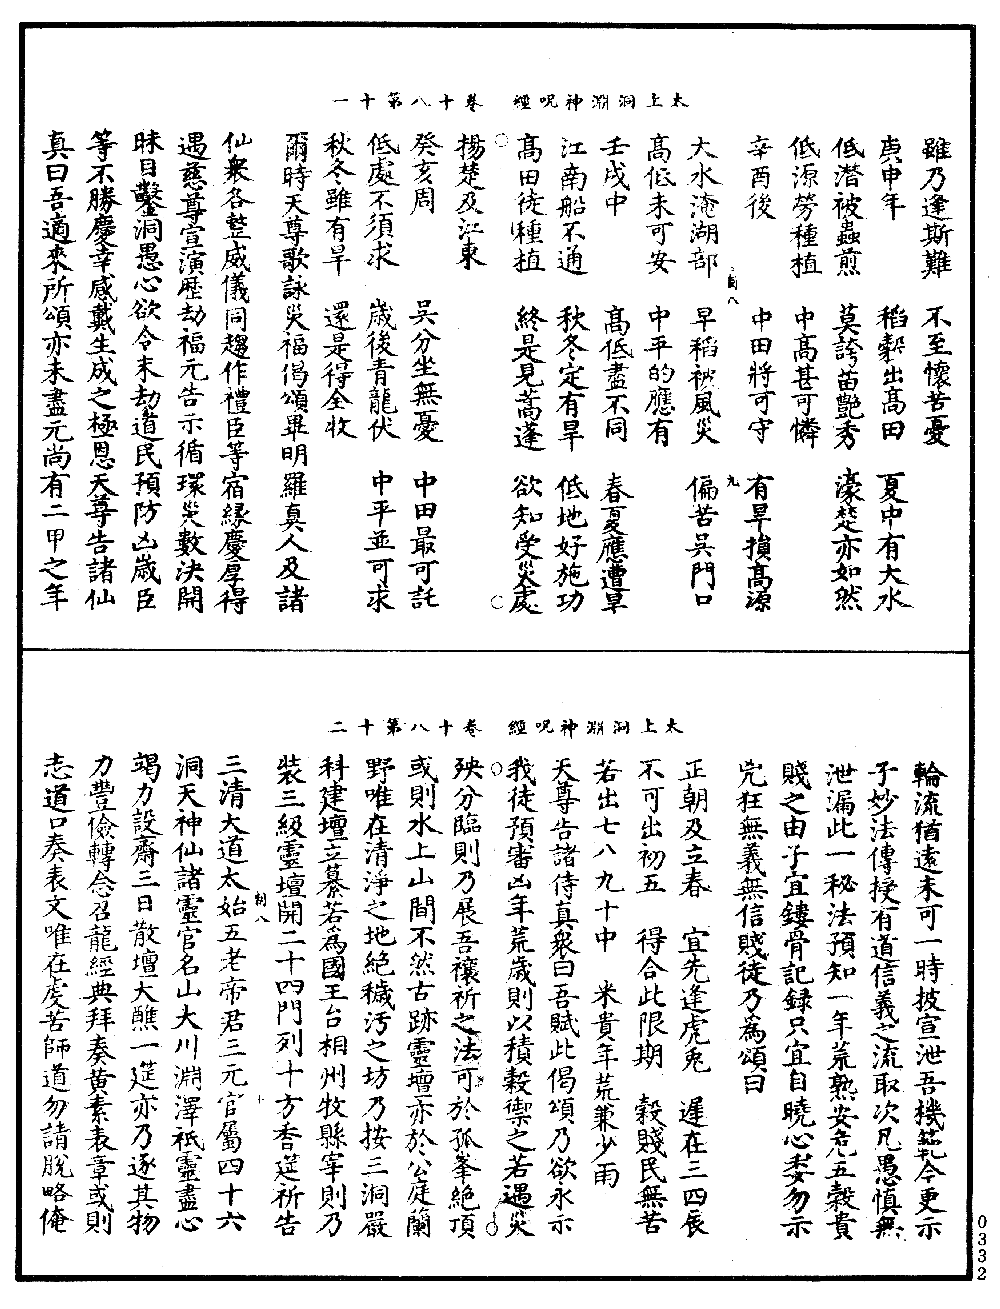 太上洞淵神呪經　卷十八第十一
雖乃逢斯難　不至懷苦憂
庚申年　稻穀出高田　夏中有大水
低潜被蟲煎　莫誇苗艷秀　濠楚亦如然
低源勞種植　中高甚可憐
辛酉後　中田將可守　有旱損高源
制八　九
大水淹湖部　早稻被風災　偏苦吳門口
高低未可安　中平的應有
壬戌中　高低盡不同　春夏應遭旱
江南船不通　秋冬定有旱　低地好施功
高田徒種植　終是見蒿蓬　欲知受災處
揚楚及江東
癸亥周　吳分坐無憂　中田最可託
低處不須求　歲後青龍伏　中平並可求
秋冬雖有旱　還是得全收
爾時天尊歌詠災福偈頌畢明羅真人及諸
仙衆各整威儀同趨作禮臣等宿緣慶厚得
遇慈尊宣演歷劫福元告示循環災數決開
昧目鑿洞愚心欲令末劫道民預防凶歲臣
等不勝慶幸感戴生成之極恩天尊告諸仙
真曰吾適來所頌亦未盡元尚有二甲之年
太上洞淵神呪經　卷十八第十二
輪流猶遠未可一時披宣泄吾機範今更示
子妙法傳授有道信義之流取次凡愚慎無
泄漏此一秘法預知一年荒熟安危五穀貴
賤之由子宜鏤骨記録只宜自曉心婁勿示
兇狂無義無信賤徒乃爲頌曰
正朝及立春　宜先逢虎兎　遲在三四辰
不可出初五　得合此限期　穀賤民無苦
若出七八九十中　米貴年荒兼少雨
天尊告諸侍真衆曰吾賦此偈頌乃欲永示
我徒預審凶年荒歲則以積穀禦之若遇災
殃分臨則乃展吾禳祈之法可於孤峯絶頂
或則水上山間不然古跡靈壇亦於公庭蘭
野唯在清淨之地絶穢汚之坊乃按三洞嚴
科建壇立纂若爲國王台相州牧縣宰則乃
裝三級靈壇開二十四門列十方香筵祈告
制八　十
三清大道太始五老帝君三元官屬四十六
洞天神仙諸靈官名山大川淵澤祇靈盡心
竭力設齋三日散壇大醮一筵亦乃逐其物
力豐儉轉念召龍經典拜奏黃素表章或則
志道口奏表文唯在虔苦師道勿請脫略俺
0332